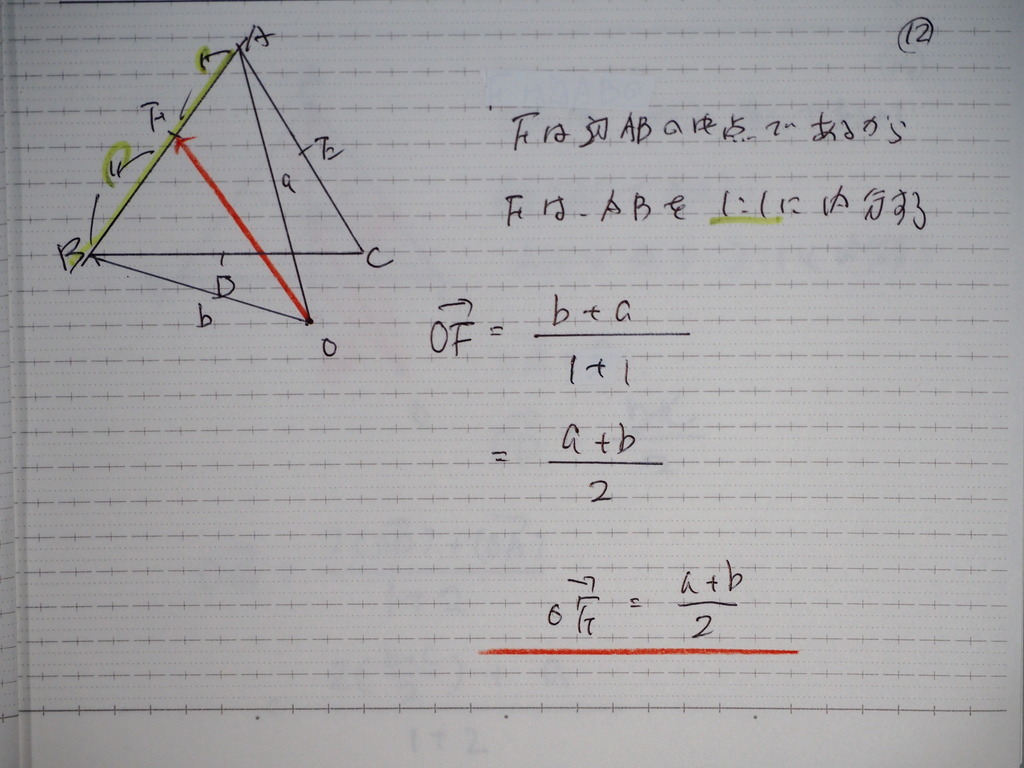 ⑫
A
F
E
a
B
D
C
b
O
Fは辺ABの中点であるから
Fは ABを 1:1に内分する
→
OF = b+a
1+1
= a+b
2
→
OF = a+b
2